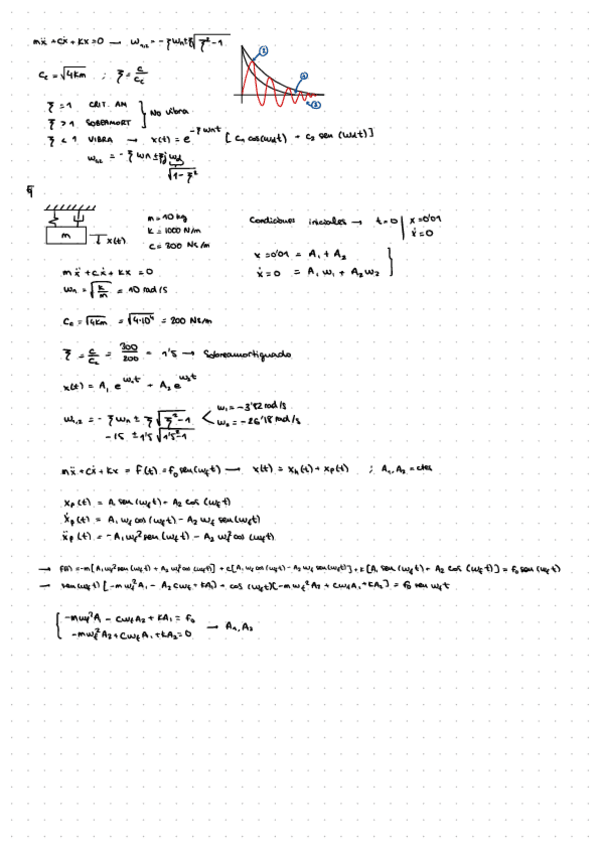 mẍ + cẋ + kx = 0 → ω₁,₂ = -ξωn ± ξ√(ξ²-1)
Cc = √4km ; ξ = c/Cc
① ② ③
ξ = 1 CRIT. AM
ξ > 1 SOBERMORT } No vibra
ξ < 1 VIBRA → x(t) = e^(-ξωnt) [C₁ cos(ωdt) + C₂ sen(ωdt)]
ω₁,₂ = -ξωn ± ξj ωd
√(1-ξ²)
m
x(t)
m = 10 kg
k = 1000 N/m
c = 300 Ns/m
Condiciones iniciales → t=0 | x = 0'01
ẋ = 0
x = 0'01 = A₁ + A₂
ẋ = 0 = A₁ω₁ + A₂ω₂ }
mẍ + cẋ + kx = 0
ωn = √(k/m) = 10 rad/s
Cc = √4km = √4·10⁴ = 200 Ns/m
ξ = c/Cc = 300/200 = 1'5 → Sobreamortiguado
x(t) = A₁ e^(ω₁t) + A₂ e^(ω₂t)
ω₁,₂ = -ξωn ± ξ√(ξ²-1) < ω₁ = -3'82 rad/s
ω₂ = -26'18 rad/s
-15 ± 1'5√(1'5²-1)
mẍ + cẋ + kx = f(t) = f₀ sen(ωft) → x(t) = xh(t) + xp(t) ; A₁, A₂ = ctes
xp(t) = A₁ sen(ωft) + A₂ cos(ωft)
ẋp(t) = A₁ωf cos(ωft) - A₂ωf sen(ωft)
ẍp(t) = -A₁ωf² sen(ωft) - A₂ωf² cos(ωft)
→ f(t) = -m[A₁ωf² sen(ωft) + A₂ωf² cos(ωft)] + c[A₁ωf cos(ωft) - A₂ωf sen(ωft)] + k[A₁ sen(ωft) + A₂ cos(ωft)] = f₀ sen(ωft)
→ sen(ωft) [-mωf²A₁ - A₂cωf + kA₁] + cos(ωft)[-mωf²A₂ + cωfA₁ + kA₂] = f₀ sen ωft
{ -mωf²A₁ - cωfA₂ + kA₁ = f₀
-mωf²A₂ + cωfA₁ + kA₂ = 0 → A₁, A₂